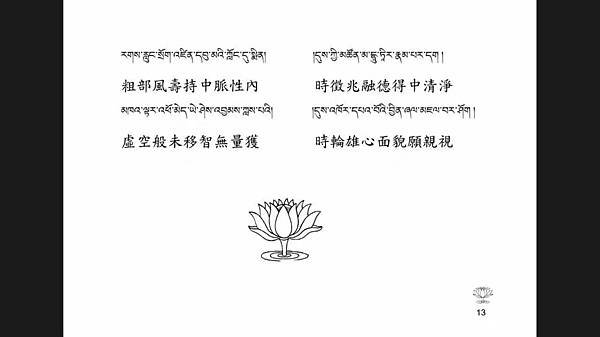 རགས་རླུང་སྲོག་འཛིན་དབུ་མའི་ཀློང་དུ་སྨིན། །དུས་ཀྱི་མཚོན་མ་དྷཱུ་ཏཱིར་རྣམ་པར་དག །
粗部風壽持中脈性內 時徵兆融德得中清淨
མཁའ་ལྟར་འཕོ་མེད་ཡེ་ཤེས་འབྱམས་ཀླས་པའི། །དུས་འཁོར་དཔའ་བོའི་བྱིན་ཞལ་མཇལ་བར་ཤོག །
虛空般未移智無量獲 時輪雄心面貌願親視
13